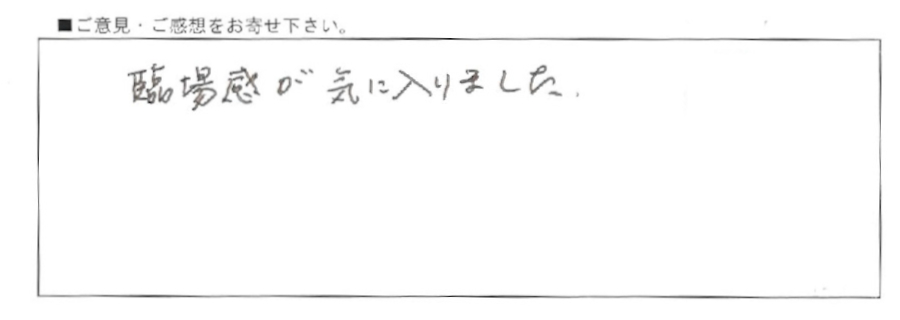 ■ご意見・ご感想をお寄せ下さい。
臨場感が気に入りました.